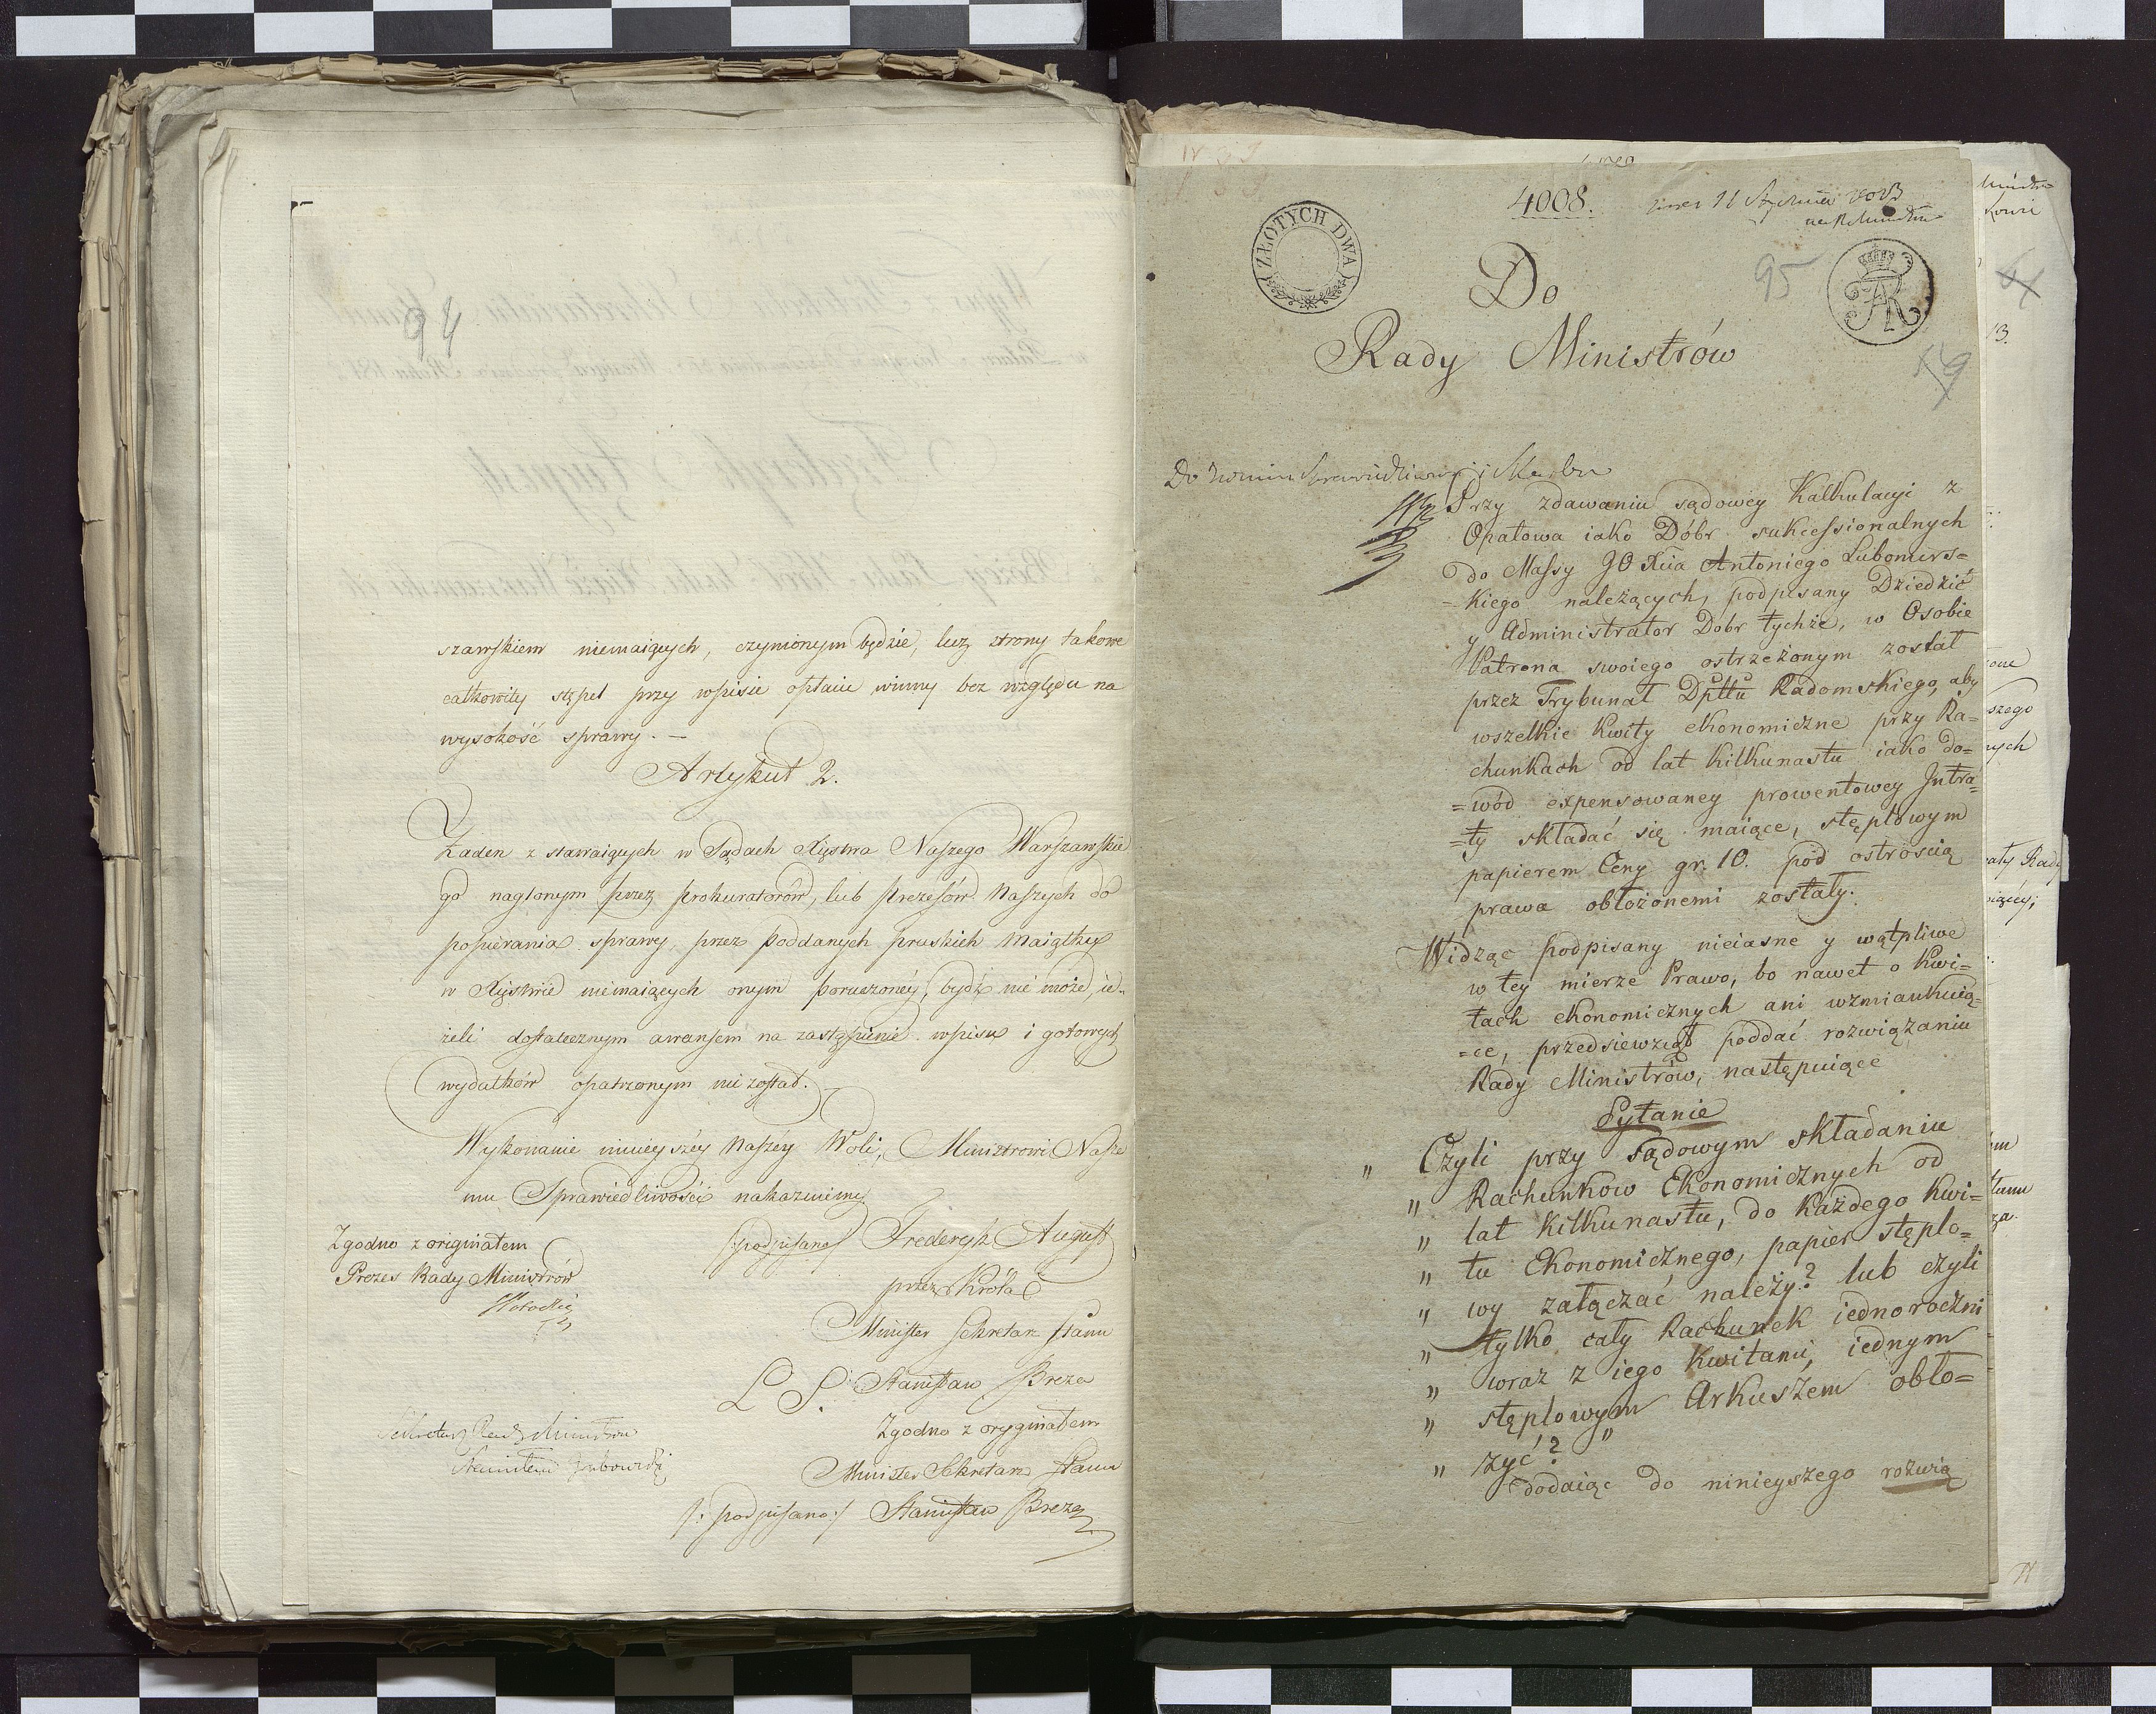 94
szawskiem niemaiących, czynionym będzie, lecz strony takowe
całkowity stępel przy wpisie opłacić winny bez względu na
wysokość sprawy. —
Artykuł 2.
Żaden z stawaiących w Sądach Xięstwa Naszego Warszawskie
go naglonym przez Prokuratorów, lub Prezesów Naszych do
popierania sprawy przez Poddanych Pruskich maiątku
w Xięstwie niemaiących onym poruczonéy, bydź nie może, ie„
żeli dostatecznym awansem na zastąpienie wpisu i gotowych
wydatków opatrzonym nie został.
Wykonanie ninieyszéy Naszéy Woli, Ministrowi Nasze
mu Sprawiedliwości nakazuiemy.
Zgodno z originałem
Prezes Rady Ministrów
/podpisano/ Frederyk August
przez Króla
Minister Sekretarz Stanu
L. S. Stanisław Breza
Zgodno z oryginałem
Minister Sekretarz Stanu
/: podpisano :/ Stanisław Breza
Sekretarz Rady Ministrów
4008.
ZŁOTYCH DWA
95
Do
Rady Ministrów
Przy zdawaniu sądowey Kalkulacyi z
Opatowa iako Dóbr sukcessionalnych
do Massy JO Xcia Antoniego Lubomirs=
=kiego należących, podpisany Dziedzic
y Administrator Dóbr tychże, w Osobie
Patrona swoiego ostrzeżonym został
przez Trybunał Dpttu Radomskiego, aby
wszelkie Kwity ekonomiczne przy Ra=
chunkach od lat kilkunastu iako do=
=wód expensowaney prowentowey Intra=
=ty składać się maiące, stęplowym
papierem Ceny gr. 10. pod ostrością
prawa obłożonemi zostały.
Widząc podpisany nieiasne y wątpliwe
w tey mierze Prawo, bo nawet o Kwi=
tach ekonomicznych ani wzmiankuią=
=ce, przedsiewziął poddać rozwiązaniu
Rady Ministrów, następuiące
Pytanie
„ Czyli przy sądowym składaniu
„ Rachunków Ekonomicznych od
„ lat kilkunastu, do każdego Kwi=
„ tu Ekonomicznego, papier stęplo=
„ wy załączać należy? lub czyli
„ tylko cały Rachunek iednoroczni
„ wraz z iego Kwitami, iednym
„ stęplowym Arkuszem obło=
„ żyć? „
Dodaiąc do ninieyszego rozwią